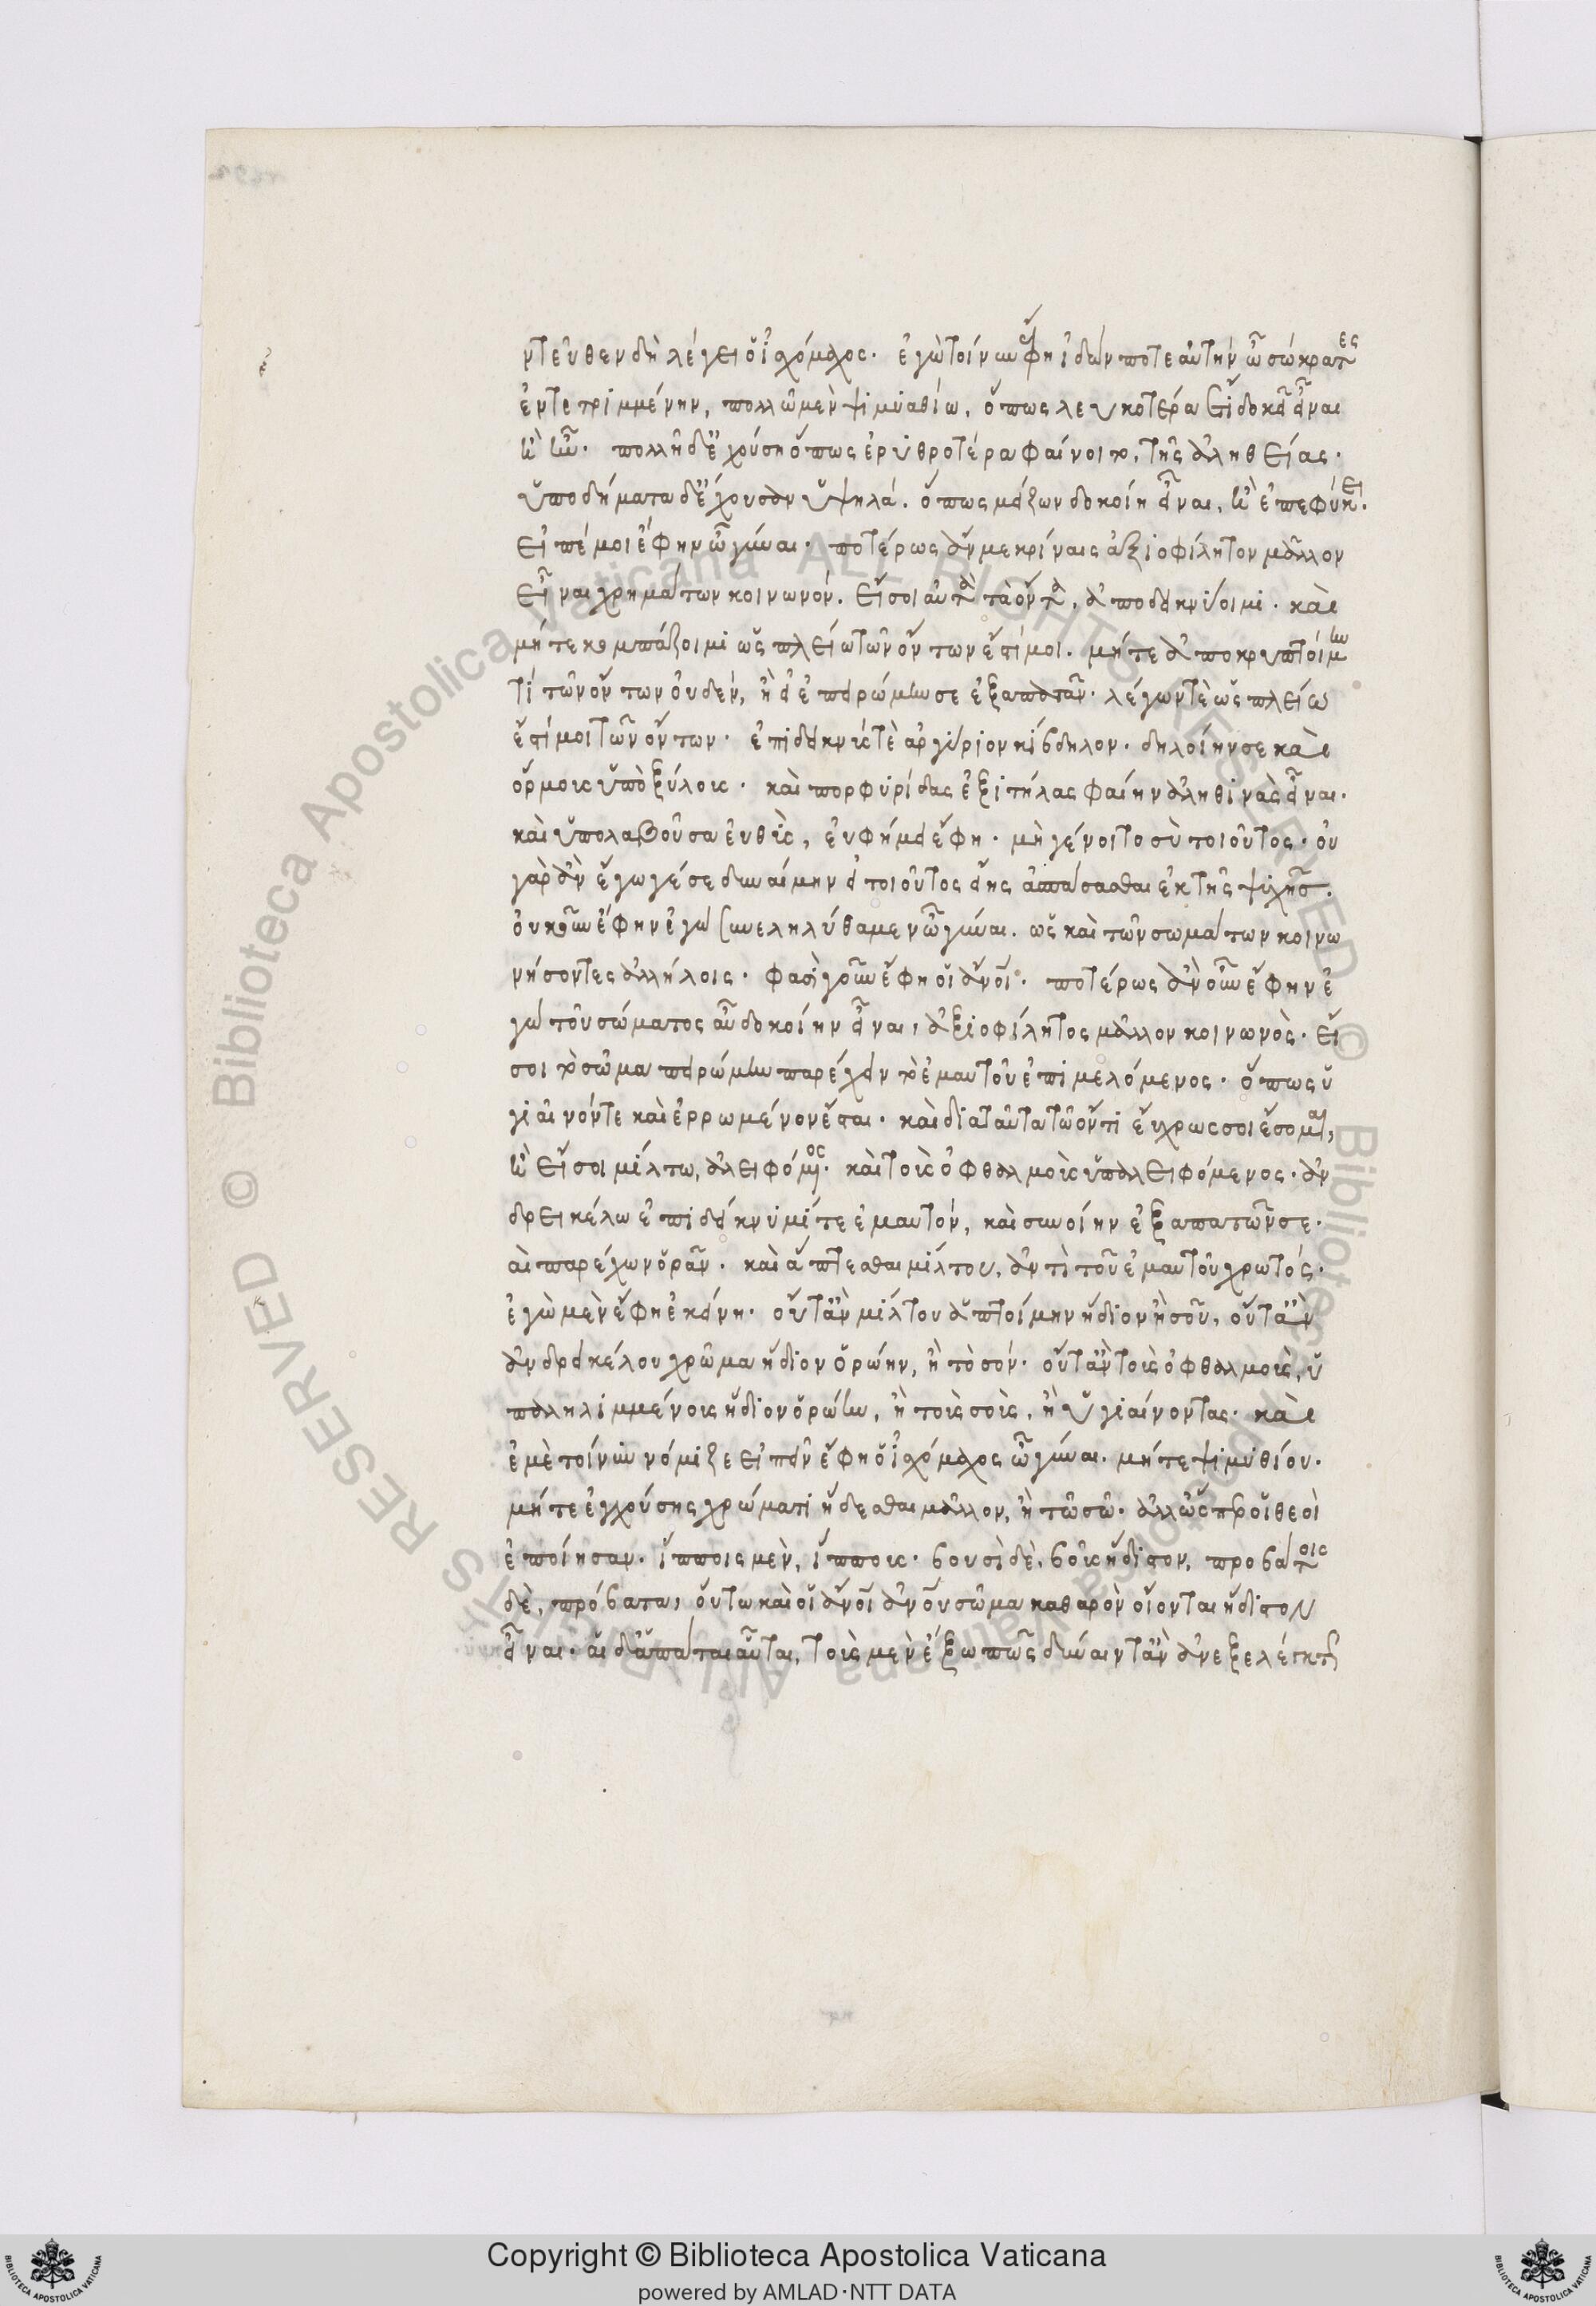 ντεῦθεν δὴ λέγει ὁ ἰσχόμαχος. ἐγὼ τοίνυν ἔφη ἰδών ποτε αὐτὴν ὦ σώκρατες
ἐντετριμμένην, πολλῷ μὲν ψιμυθίω, ὅπως λευκοτέρα ἔτι δοκῇ εἶναι
ἢ ἦν. πολλῇ δ' ἐγχούσῃ ὅπως ἐρυθροτέρα φαίνοιτο, τῆς ἀληθείας.
ὑποδήματα δ' ἔχουσαν ὑψηλά. ὅπως μείζων δοκοίη εἶναι, ἢ ἐπεφύκει.
εἰπέ μοι ἔφην ὦ γύναι. ποτέρως ἄν με κρίναις ἀξιοφίλητον μᾶλλον
εἶναι χρημάτων κοινωνόν. εἴ σοι αὐτὰ τὰ ὄντα, ἀποδεικνύοιμι. καὶ
μήτε κομπάζοιμι ὡς πλείω τῶν ὄντων ἔστί μοι. μήτε ἀποκρυπτοίμην
τί τῶν ὄντων οὐδέν, ἢ εἰ ἐπειρώμην σε ἐξαπατᾶν. λέγων τὲ ὡς πλείω
ἔστί μοι τῶν ὄντων. ἐπιδεικνύς τὲ ἀργύριον κίβδηλον. δηλοίην σε καὶ
ὅρμοις ὑπὸξύλοις. καὶ πορφυρίδας ἐξιτήλας φαίην ἀληθινὰς εἶναι.
καὶ ὑπολαβοῦσα εὐθὺς, εὐφήμει ἔφη. μὴ γένοιτο σὺ τοιοῦτος. οὐ
γὰρ ἂν ἔγωγέ σε δυναίμην εἰ τοιοῦτος εἴης ἀσπάσασθαι ἐκ τῆς ψυχῆς.
οὐκοῦν ἔφην ἐγὼ συνεληλύθαμεν ὦ γύναι. ὡς καὶ τῶν σωμάτων κοινω
νήσοντες ἀλλήλοις. φασὶ γοῦν ἔφη οἱ ἄνοι. ποτέρως ἂν οὖν ἔφην ἐ
γὼ τοῦ σώματος αὖ δοκοίην εἶναι, ἀξιοφίλητος μᾶλλον κοινωνός. εἴ
σοι τὸ σῶμα πειρώμην παρέχειν τὸ ἐμαυτοῦ ἐπιμελόμενος. ὅπως ὑ
γιαῖνόν τε καὶ ἐρρωμένον ἔσται. καὶ διὰ ταῦτα τῷ ὄντι εὔχρως σοι ἔσομαι,
ἢ εἴ σοι μίλτω, ἀλειφόμενος. καὶ τοὺς ὀφθαλμοὺς ὑπαλειφόμενος. ἀν
δρεικέλω ἐπιδεικνύμί τε ἐμαυτόν, καὶ συνοίην ἐξαπατῶν σε.
αὶ παρέχων ὁρᾶν. καὶ ἅπτεσθαι μίλτου, ἀντὶ τοῦ ἐμαυτοῦ χρωτός.
ἐγὼ μὲν ἔφη ἐκείνη. οὔτ' ἂν μίλτου ἁπτοίμην ἥδιον ἢ σοῦ, οὔτ' ἂν
ἀνδρεικέλου χρῶμα ἥδιον ὁρώην, ἢ τὸ σόν. οὔτ' ἂν τοὺς ὀφθαλμοὺς, ὑ
παληλιμμένοις ἥδιον ὁρώην, ἢ τοὺς σοὺς, ἢ ὑγιαίνοντας. καὶ
ἐμὲ τοίνυν νόμιζε εἰπεῖν ἔφη ὁ ἰσχόμαχος ὦ γύναι. μήτε ψιμυθίου.
μήτε ἐγχούσης χρώματι ἥδεσθαι μᾶλλον, ἢ τῷ σῷ. ἀλλ' ὥσπερ οἱ θεοὶ
ἐποίησαν. ἵπποις μὲν, ἵππους. βουσὶ δὲ, βοῦς ἥδιστον, προβάτοις
δὲ, πρόβατα, οὕτω καὶ οἱ ἄνοι ἄνου σῶμα καθαρὸν οἴονται ἥδιστον
εἶναι. αἱ δ' ἀπάται αὗται, τοὺς μὲν ἔξω πῶς δύναιντ' ἂν ἀνεξελέγκτως